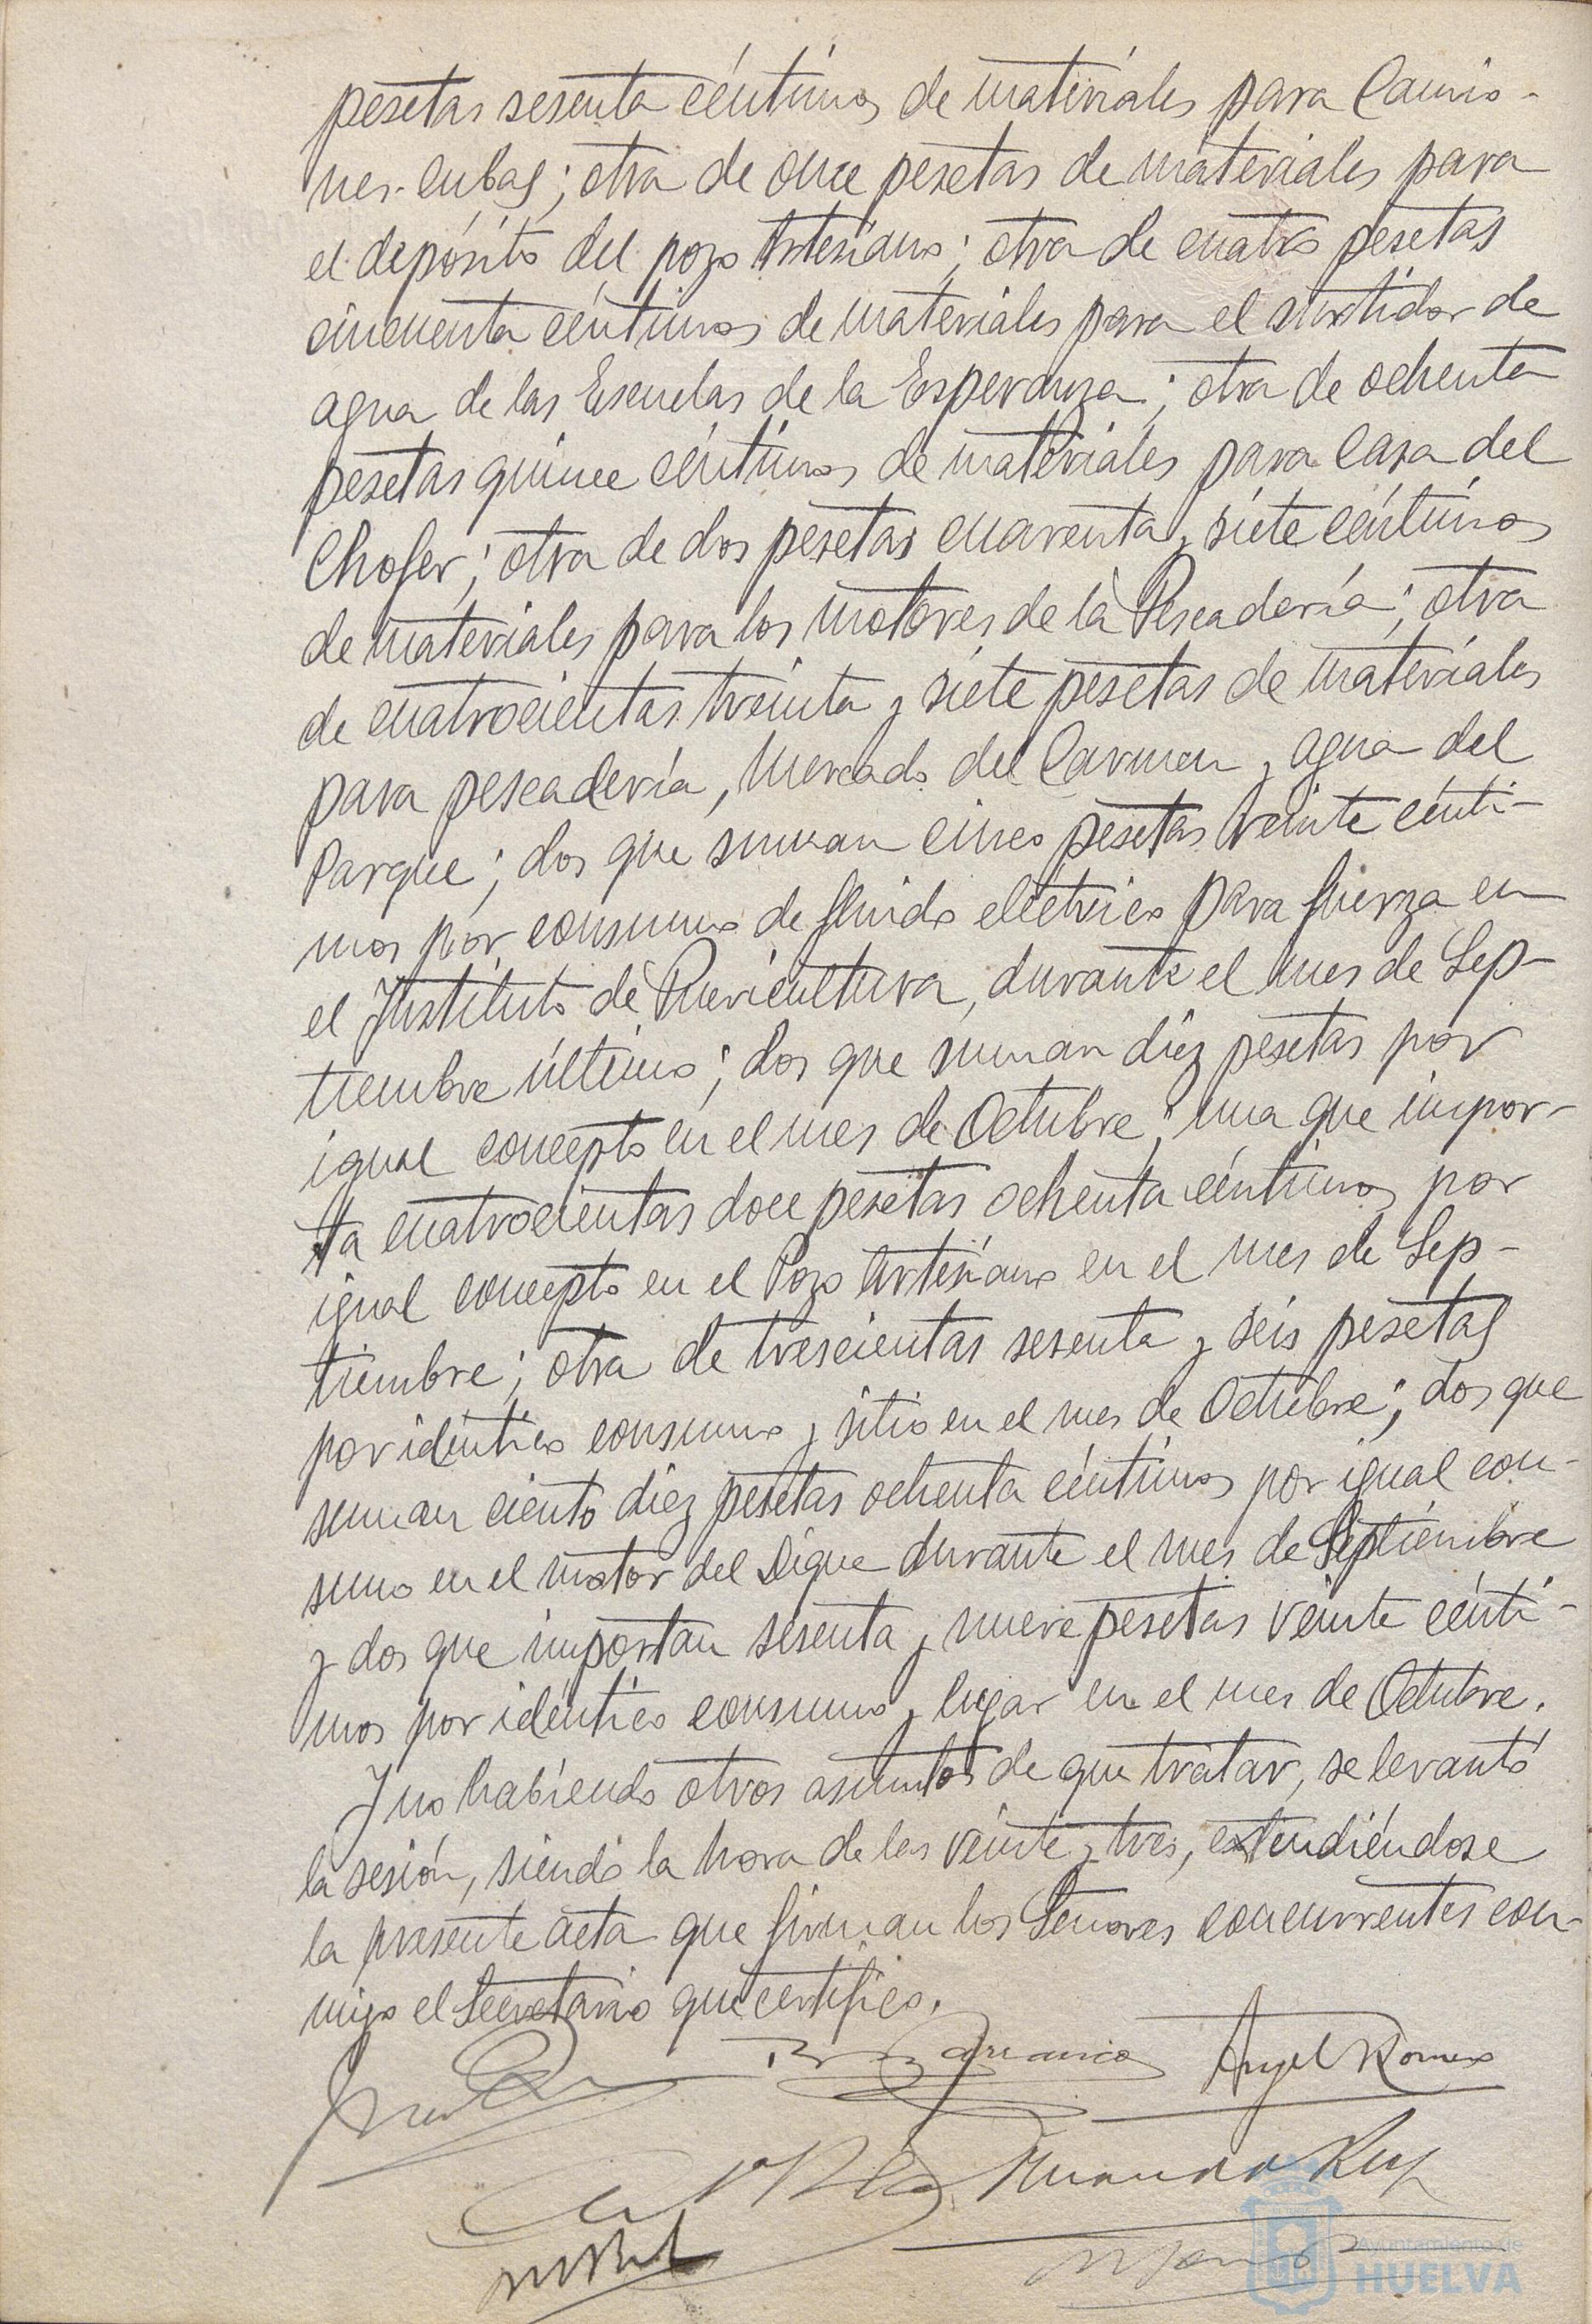 pesetas sesenta céntimos de materiales para Camio-
nes-cubas; otra de once pesetas de materiales para
el depósito del pozo Artesiano; otra de cuatro pesetas
cincuenta céntimos de materiales para el surtidor de
agua de las Escuelas de la Esperanza; otra de ochenta
pesetas quince céntimos de materiales para Casa del
Chofer; otra de dos pesetas cuarenta y siete céntimos
de materiales para los motores de la Pescadería; otra
de cuatrocientas treinta y siete pesetas de materiales
para pescadería, Mercado del Carmen y agua del
Parque; dos que suman cinco pesetas veinte cénti-
mos por consumo de fluido eléctrico para fuerza en
el Instituto de Puericultura, durante el mes de Sep-
tiembre último; dos que suman diez pesetas por
igual concepto en el mes de Octubre; una que impor-
ta cuatrocientas doce pesetas ochenta céntimos por
igual concepto en el Pozo Artesiano en el mes de Sep-
tiembre; otra de trescientas sesenta y seis pesetas
por idéntico consumo y sitio en el mes de Octubre; dos que
suman ciento diez pesetas ochenta céntimos por igual con-
sumo en el motor del Dique durante el mes de Septiembre
y dos que importan sesenta y nueve pesetas veinte cénti-
mos por idéntico consumo y lugar en el mes de Octubre.
Y no habiendo otros asuntos de que tratar, se levantó
la sesión, siendo la hora de las veinte y tres, extendiéndose
la presente acta que firman los Señores concurrentes con-
migo el Secretario que certifico.
Angel Romero
Ruiz
Ayuntamiento de
HUELVA